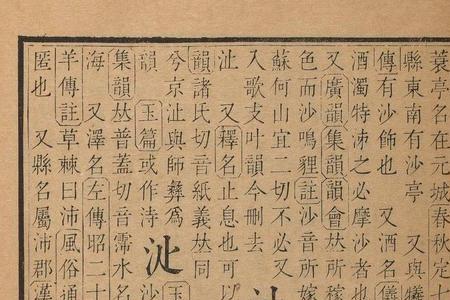 亭名在元城春秋定
縣東南有沙亭 又與
傳有沙飾也 又酒名儀
酒濁特泲之必摩沙者也
又廣韻集韻韻會𠀤所稼
色而沙鳴貍註沙音所嫁
蘇何山宜二切不必又
入歌支叶韻今刪去
沚 又釋名止息也可以
韻諸氏切音紙義𠀤同
兮京沚與師彝爲
韻 玉篇或作洔
集韻𠀤普蓋切音霈水名
海 又澤名左傳昭二十
羊傳註草棘曰沛風俗通
匿也 又縣名屬沛郡漢